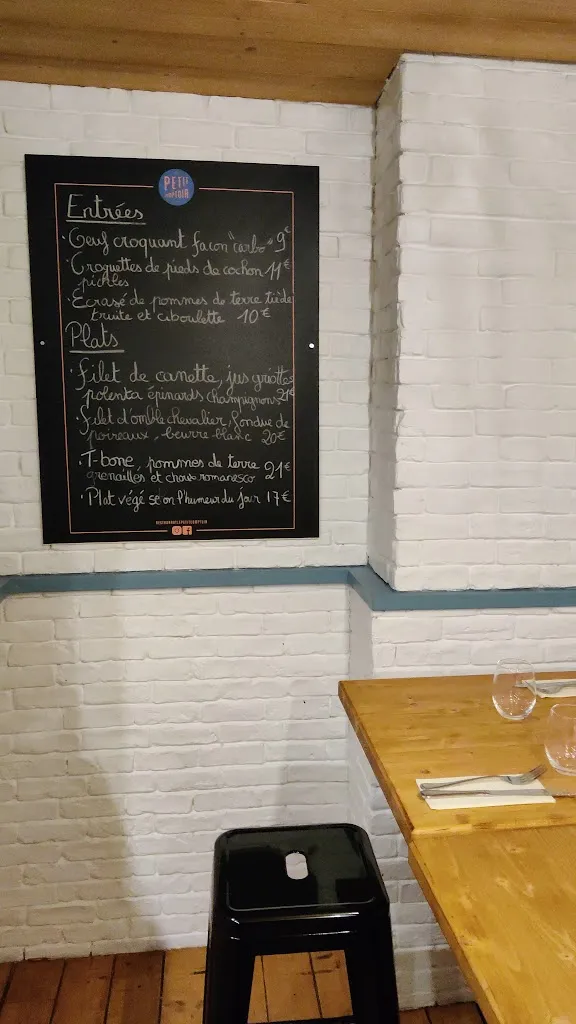 PETIT
COMPTOIR
Entrées
· Oeuf croquant façon "carbo" 9€
· Croquettes de pieds de cochon 11€
pickles
· Ecrasé de pommes de terre tiède
truite et ciboulette 10€
Plats
· Filet de canette, jus griottes
polenta épinards champignons 21€
· Filet d'omble chevalier, fondue de
poireaux, beurre blanc 20€
· T-bone, pommes de terre
grenailles et choux romanesco 21€
· Plat végé selon l'humeur du jour 17€
RESTAURANTLEPETITCOMPTOIR